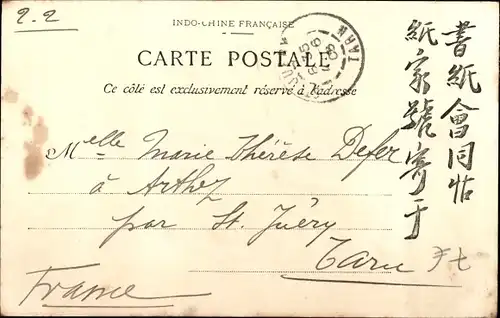 2.2
INDO-CHINE FRANÇAISE
CARTE POSTALE
Ce côté est exclusivement réservé à l'adresse
TARN
Melle Marie Thérèse Defer
à Arthez
par St. Juéry
Tarn
France
書紙會同怗
紙家號寄于